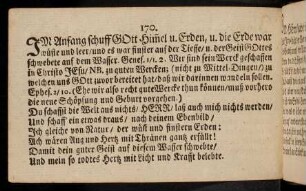 170.
IM Anfang schuff GOtt Him̃el u. Erden, u. die Erde war
wüste und leer/ und es war finster auf der Tieffe/ u. der Geist GOttes
schwebete auf dem Wasser. Genes. 1/1. 2. Wir sind sein Werck geschaffen
in Christo JEsu/ NB. zu guten Wercken; (nicht zu Mittel-Dingen/) zu
welchen GOtt uns zuvor bereitet hat/ daß wir darinnen wandeln sollen.
Ephes. 2/10. (Ehe wir also recht gute Wercke thun können/ muß vorhero
die neue Schöpfung und Geburt vorgehen.)
DU schaffst die Welt aus nichts/ HERR/ laß auch mich nichts werden/
Und schaff ein etwas draus/ nach deinem Ebenbild/
Ich gleiche von Natur/ der wüst und finstern Erden:
Ach wären Aug und Hertz mit Thränen gantz erfüllt!
Damit dein guter Geist auf diesem Wasser schwebte/
Und mein so todtes Hertz mit Licht und Krafft belebte.